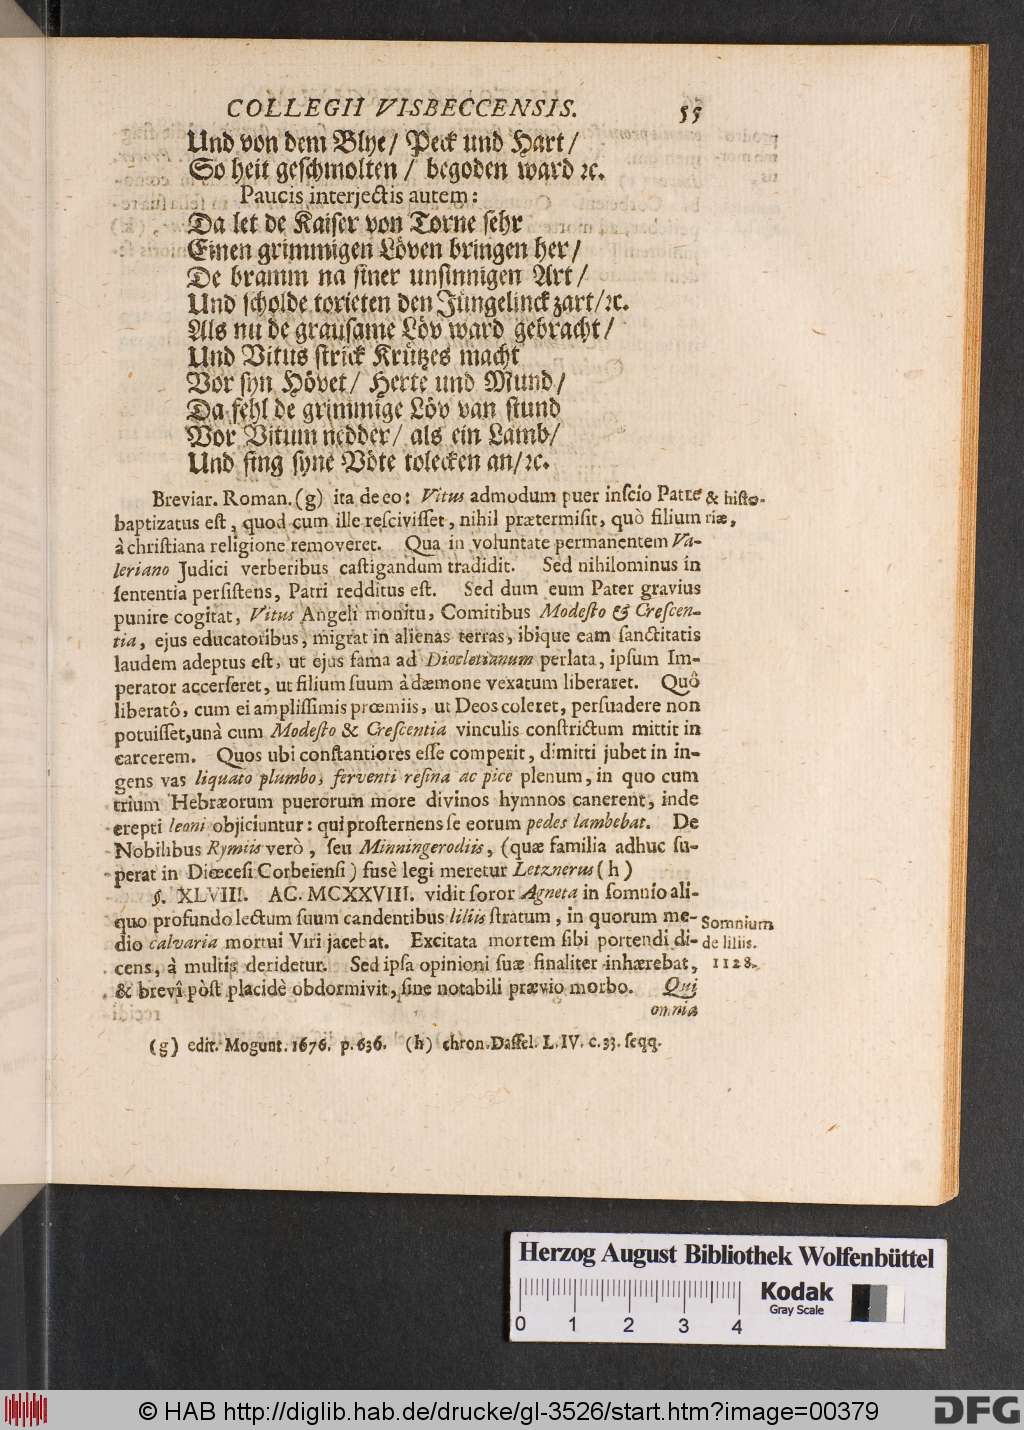 COLLEGII VISBECCENSIS. 55
Und von dem Blye/ Peck und Hart/
So heit geschmolten/ begoden ward ꝛc.
Paucis interjectis autem:
Da let de Kaiser von Torne sehr
Einen grimmigen Löven bringen her/
De bramm na siner unsinnigen Art/
Und scholde torieten den Jüngelinck zart/ꝛc.
Als nu de grausame Löv ward gebracht/
Und Vitus strick Krützes macht
Vor syn Hövet/ Herte und Mund/
Da fehl de grimmige Löv van stund
Vor Vitum nedder/ als ein Lamb/
Und fing syne Vöte tolecken an/ꝛc.
Breviar. Roman. (g) ita de eo: Vitus admodum puer inscio Patre & histo-
baptizatus est, quod cum ille rescivisset, nihil prætermisit, quò filium riæ,
à christiana religione removeret. Qua in voluntate permanentem Va-
leriano Judici verberibus castigandum tradidit. Sed nihilominus in
sententia persistens, Patri redditus est. Sed dum eum Pater gravius
punire cogitat, Vitus Angeli monitu, Comitibus Modesto & Crescen-
tia, ejus educatoribus, migrat in alienas terras, ibique eam sanctitatis
laudem adeptus est, ut ejus fama ad Diocletianum perlata, ipsum Im-
perator accerseret, ut filium suum à dæmone vexatum liberaret. Quô
liberatô, cum ei amplissimis prœmiis, ut Deos coleret, persuadere non
potuisset, unà cum Modesto & Crescentia vinculis constrictum mittit in
carcerem. Quos ubi constantiores esse comperit, dimitti jubet in in-
gens vas liquato plumbo, ferventi resina ac pice plenum, in quo cum
trium Hebræorum puerorum more divinos hymnos canerent, inde
erepti leoni objiciuntur: qui prosternens se eorum pedes lambebat. De
Nobilibus Rymiis verò, seu Minningerodiis, (quæ familia adhuc su-
perat in Diœcesi Corbeiensi) fusè legi meretur Letznerus (h)
§. XLVIII. AC. MCXXVIII. vidit soror Agneta in somnio ali-
quo profundo lectum suum candentibus liliis stratum, in quorum me-
dio calvaria mortui Viri jacebat. Excitata mortem sibi portendi di-
cens, à multis deridetur. Sed ipsa opinioni suæ finaliter inhærebat,
& brevî pòst placidè obdormivit, sine notabili prævio morbo. Qui
omnia
Somnium
de liliis.
1128.
(g) edit. Mogunt. 1676. p. 636. (h) chron. Dassel. L. IV. c. 33. seqq.
Herzog August Bibliothek Wolfenbüttel
Kodak
Gray Scale
0 1 2 3 4
© HAB http://diglib.hab.de/drucke/gl-3526/start.htm?image=00379
DFG